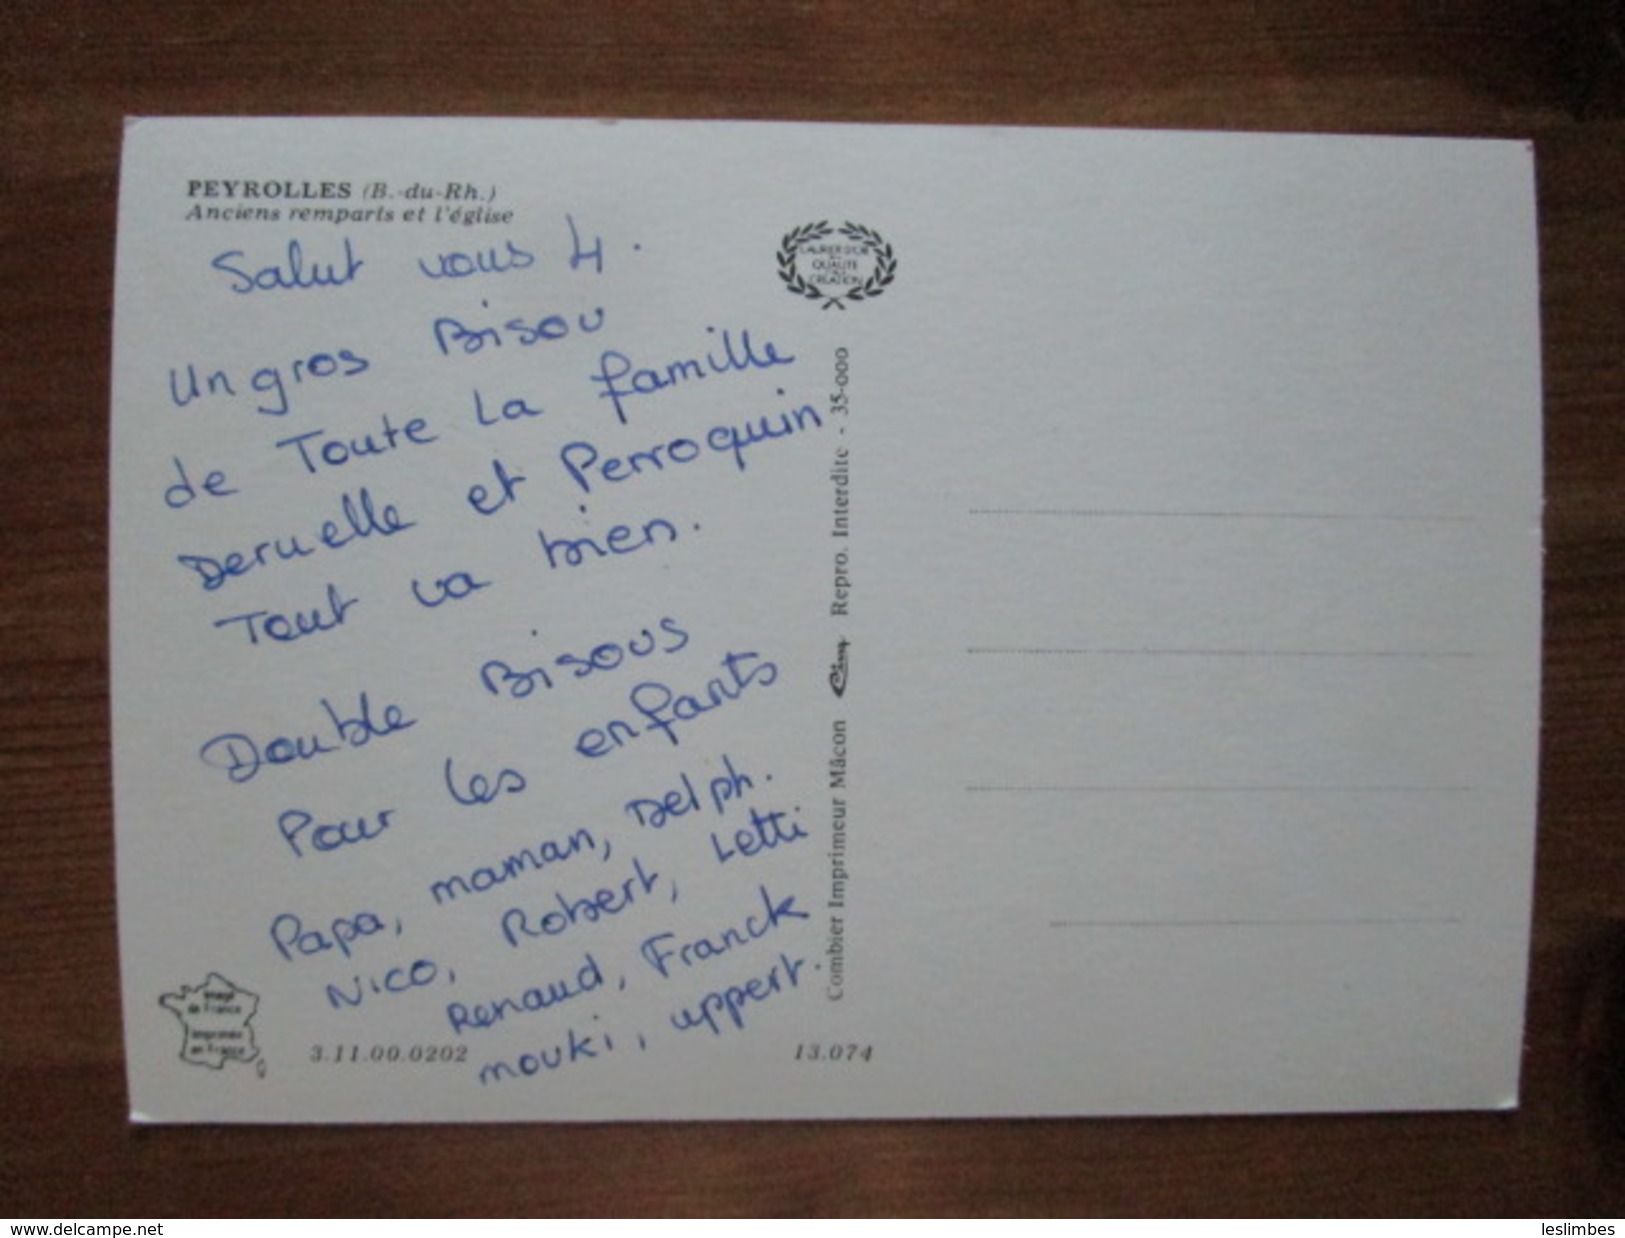 PEYROLLES (B.-du-Rh.)
Anciens remparts et l'église
Salut vous 4.
Un gros Bisou
de Toute La famille
Deruelle et Perroquin
Tout va bien.
Double Bisous
Pour les enfants
Papa, maman, Delph.
Nico, Robert, Letti
Renaud, Franck
mouki, uppert.
Image
de France
imprimée
en France
3.11.00.0202
13.074
LAURIER D'OR
QUALITE
CREATION
Combier Imprimeur Mâcon Cim Repro. Interdite - 35-000
www.delcampe.net
leslimbes